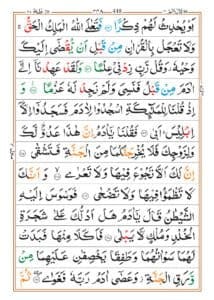 اَوْ يُحْدِثُ لَهُمْ ذِكْرًا فَتَعٰلَى اللّٰهُ الْمَلِكُ الْحَقُّ ۚ
وَلَا تَعْجَلْ بِالْقُرْاٰنِ مِنْ قَبْلِ اَنْ يُّقْضٰٓى اِلَيْكَ
وَحْيُهٗ ۫ وَقُلْ رَّبِّ زِدْنِيْ عِلْمًا وَلَقَدْ عَهِدْنَآ اِلٰٓى
اٰدَمَ مِنْ قَبْلُ فَنَسِيَ وَلَمْ نَجِدْ لَهٗ عَزْمًا وَ
اِذْ قُلْنَا لِلْمَلٰٓئِكَةِ اسْجُدُوْا لِاٰدَمَ فَسَجَدُوْٓا اِلَّآ
اِبْلِيْسَ اَبٰى فَقُلْنَا يٰٓاٰدَمُ اِنَّ هٰذَا عَدُوٌّ لَّكَ
وَلِزَوْجِكَ فَلَا يُخْرِجَنَّكُمَا مِنَ الْجَنَّةِ فَتَشْقٰى
اِنَّ لَكَ اَلَّا تَجُوْعَ فِيْهَا وَلَا تَعْرٰى وَاَنَّكَ
لَا تَظْمَؤُا فِيْهَا وَلَا تَضْحٰى فَوَسْوَسَ اِلَيْهِ
الشَّيْطٰنُ قَالَ يٰٓاٰدَمُ هَلْ اَدُلُّكَ عَلٰى شَجَرَةِ
الْخُلْدِ وَمُلْكٍ لَّا يَبْلٰى فَاَكَلَا مِنْهَا فَبَدَتْ
لَهُمَا سَوْاٰتُهُمَا وَطَفِقَا يَخْصِفٰنِ عَلَيْهِمَا مِنْ
وَّرَقِ الْجَنَّةِ وَعَصٰٓى اٰدَمُ رَبَّهٗ فَغَوٰى ثُمَّ